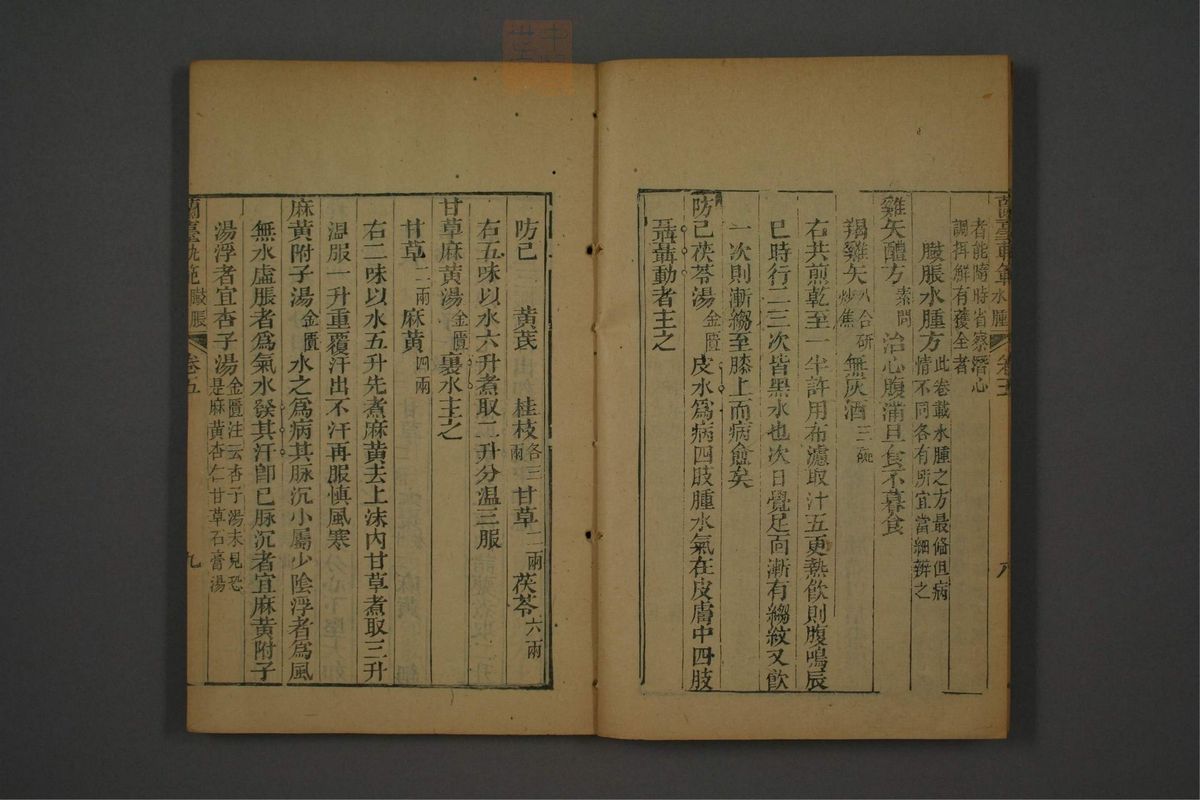 者能隨時省察潛心
調攝鮮有獲全者
臌脹水腫方此卷載水腫之方最偹但病
情不同各有所宜當細辨之
雞矢醴方素問 治心腹滿旦食不暮食
羯雞矢八合研炒焦 無灰酒三碗
右共煎乾至一半許用布濾取汁五更熱飲則腹鳴辰
巳時行二三次皆黑水也次日覺足面漸有縐紋又飲
一次則漸縐至膝上而病愈矣
防己茯苓湯金匱 皮水爲病四肢腫水氣在皮膚中四肢
聶聶動者主之
防己三 黃芪 桂枝各三兩 甘草二兩 茯苓六兩
右五味以水六升煮取二升分溫三服
甘草麻黃湯金匱 裏水主之
甘草二兩 麻黃四兩
右二味以水五升先煮麻黃去上沫內甘草煮取三升
温服一升重覆汗出不汗再服慎風寒
麻黃附子湯金匱 水之爲病其脉沉小屬少陰浮者爲風
無水虛脹者爲氣水發其汗卽已脉沉者宜麻黃附子
湯浮者宜杏子湯金匱注云杏子湯未見恐
是麻黃杏仁甘草石膏湯
蘭臺軌範 臌脹 卷五 九
水腫 卷五 八